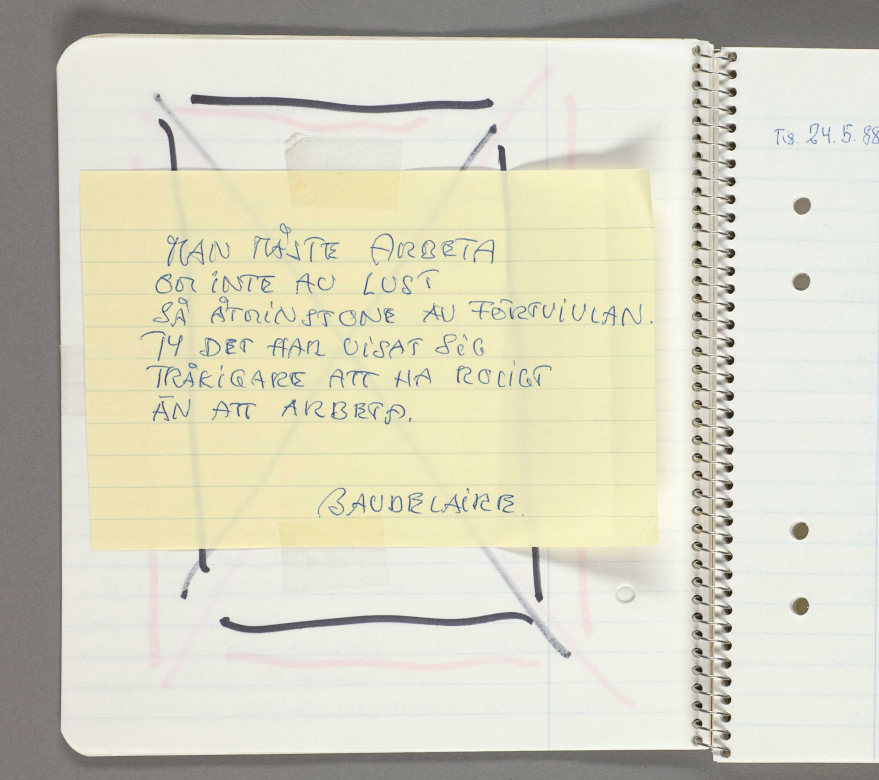 MAN MÅSTE ARBETA
OM INTE AV LUST
SÅ ÅTMINSTONE AV FÖRTVIVLAN.
TY DET HAR VISAT SIG
TRÅKIGARE ATT HA ROLIGT
ÄN ATT ARBETA.
BAUDELAIRE.
Tis. 24.5.88